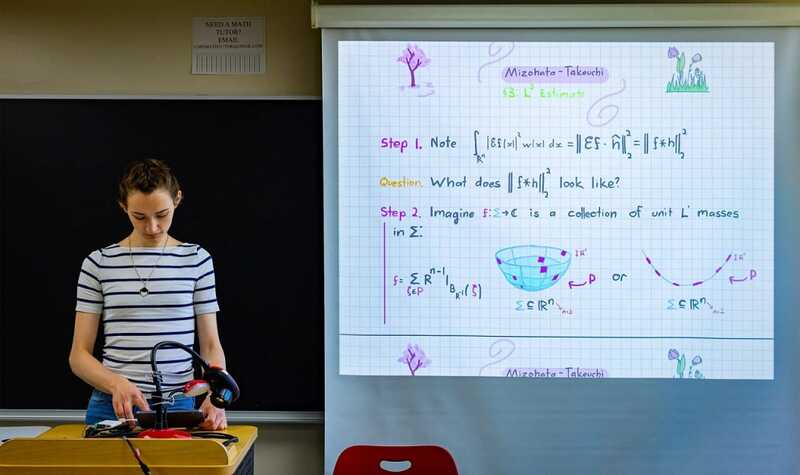 NEED A MATH
TUTOR?
EMAIL
Mizohata - Takeuchi
§3: L² Estimate
Step 1. Note ∫_{ℝⁿ} |Ef(x)|² w(x) dx = ‖Ef · ĥ‖₂² = ‖f*h‖₂²
Question. What does ‖f*h‖₂² look like?
Step 2. Imagine f:Σ→ℂ is a collection of unit L¹ masses
in Σ:
f = Σ_{ζ∈P} R^{n-1}|_{B_{R⁻¹}(ζ)}
I R⁻¹
P
or
I R⁻¹
P
Σ ⊆ ℝⁿ
Σ ⊆ ℝⁿ
Mizohata - Takeuchi